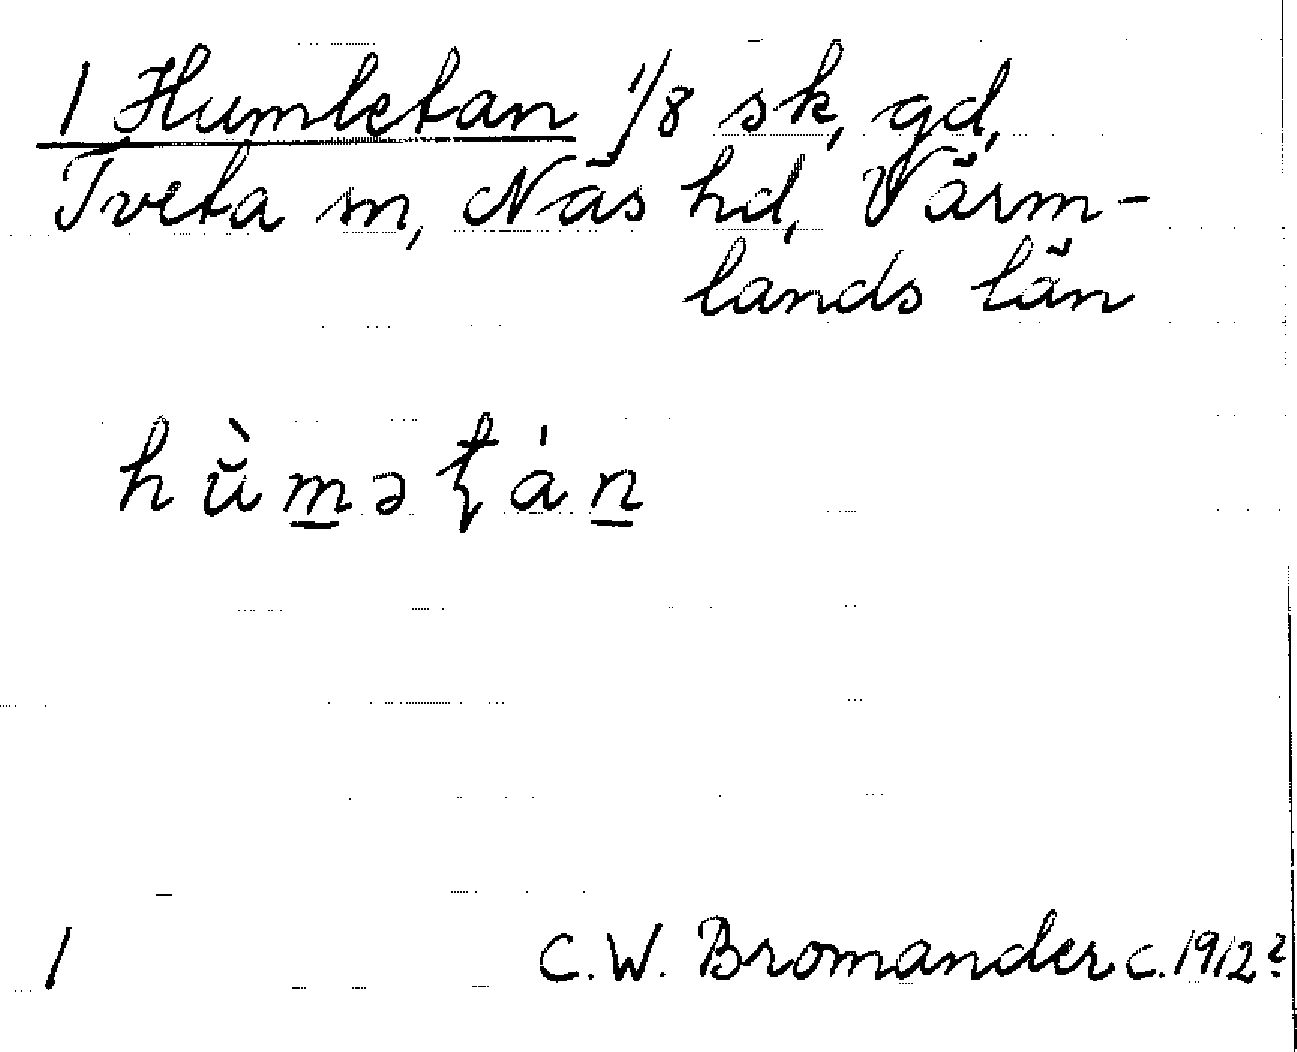 1 Humletan 1/8 sk, gd,
Tveta sn, Näs hd, Värm-
lands län
hŭ̀m̲əƫán̲
1 C.W. Bromander c. 1912?